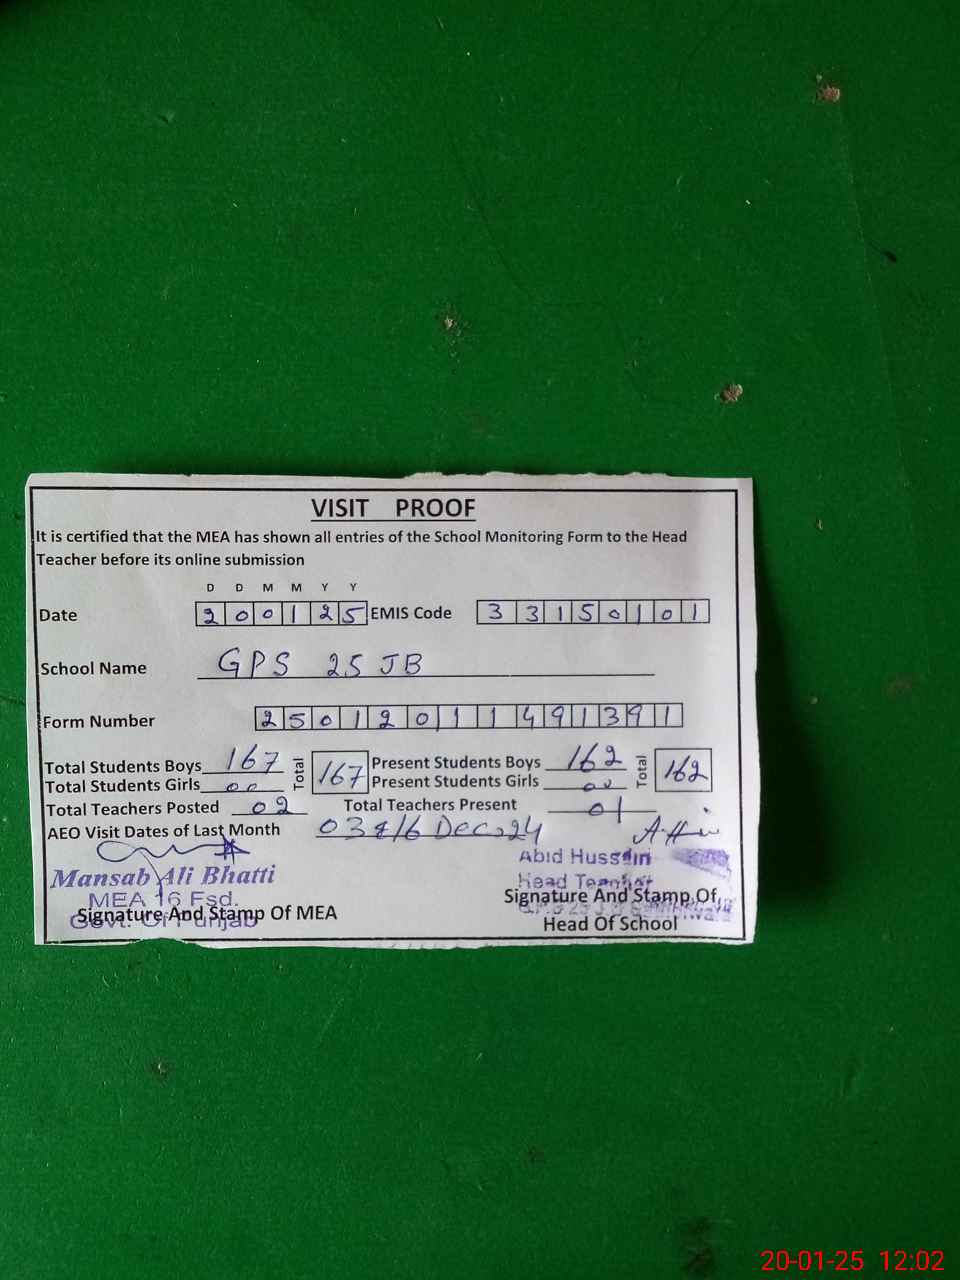 VISIT PROOF
It is certified that the MEA has shown all entries of the School Monitoring Form to the Head
Teacher before its online submission
D D M M Y Y
Date 200125 EMIS Code 33150101
School Name GPS 25 JB
Form Number 250120111491391
Total Students Boys 167 Total 167 Present Students Boys 162 Total 162
Total Students Girls 00 Present Students Girls 00
Total Teachers Posted 02 Total Teachers Present 01
AEO Visit Dates of Last Month 03 & 16 Dec, 24
Abid Hussain
Mansab Ali Bhatti
Head Teacher
MEA 16 Fsd.
Signature And Stamp Of
Govt. Of Punjab
Signature And Stamp Of MEA
Head Of School
20-01-25 12:02